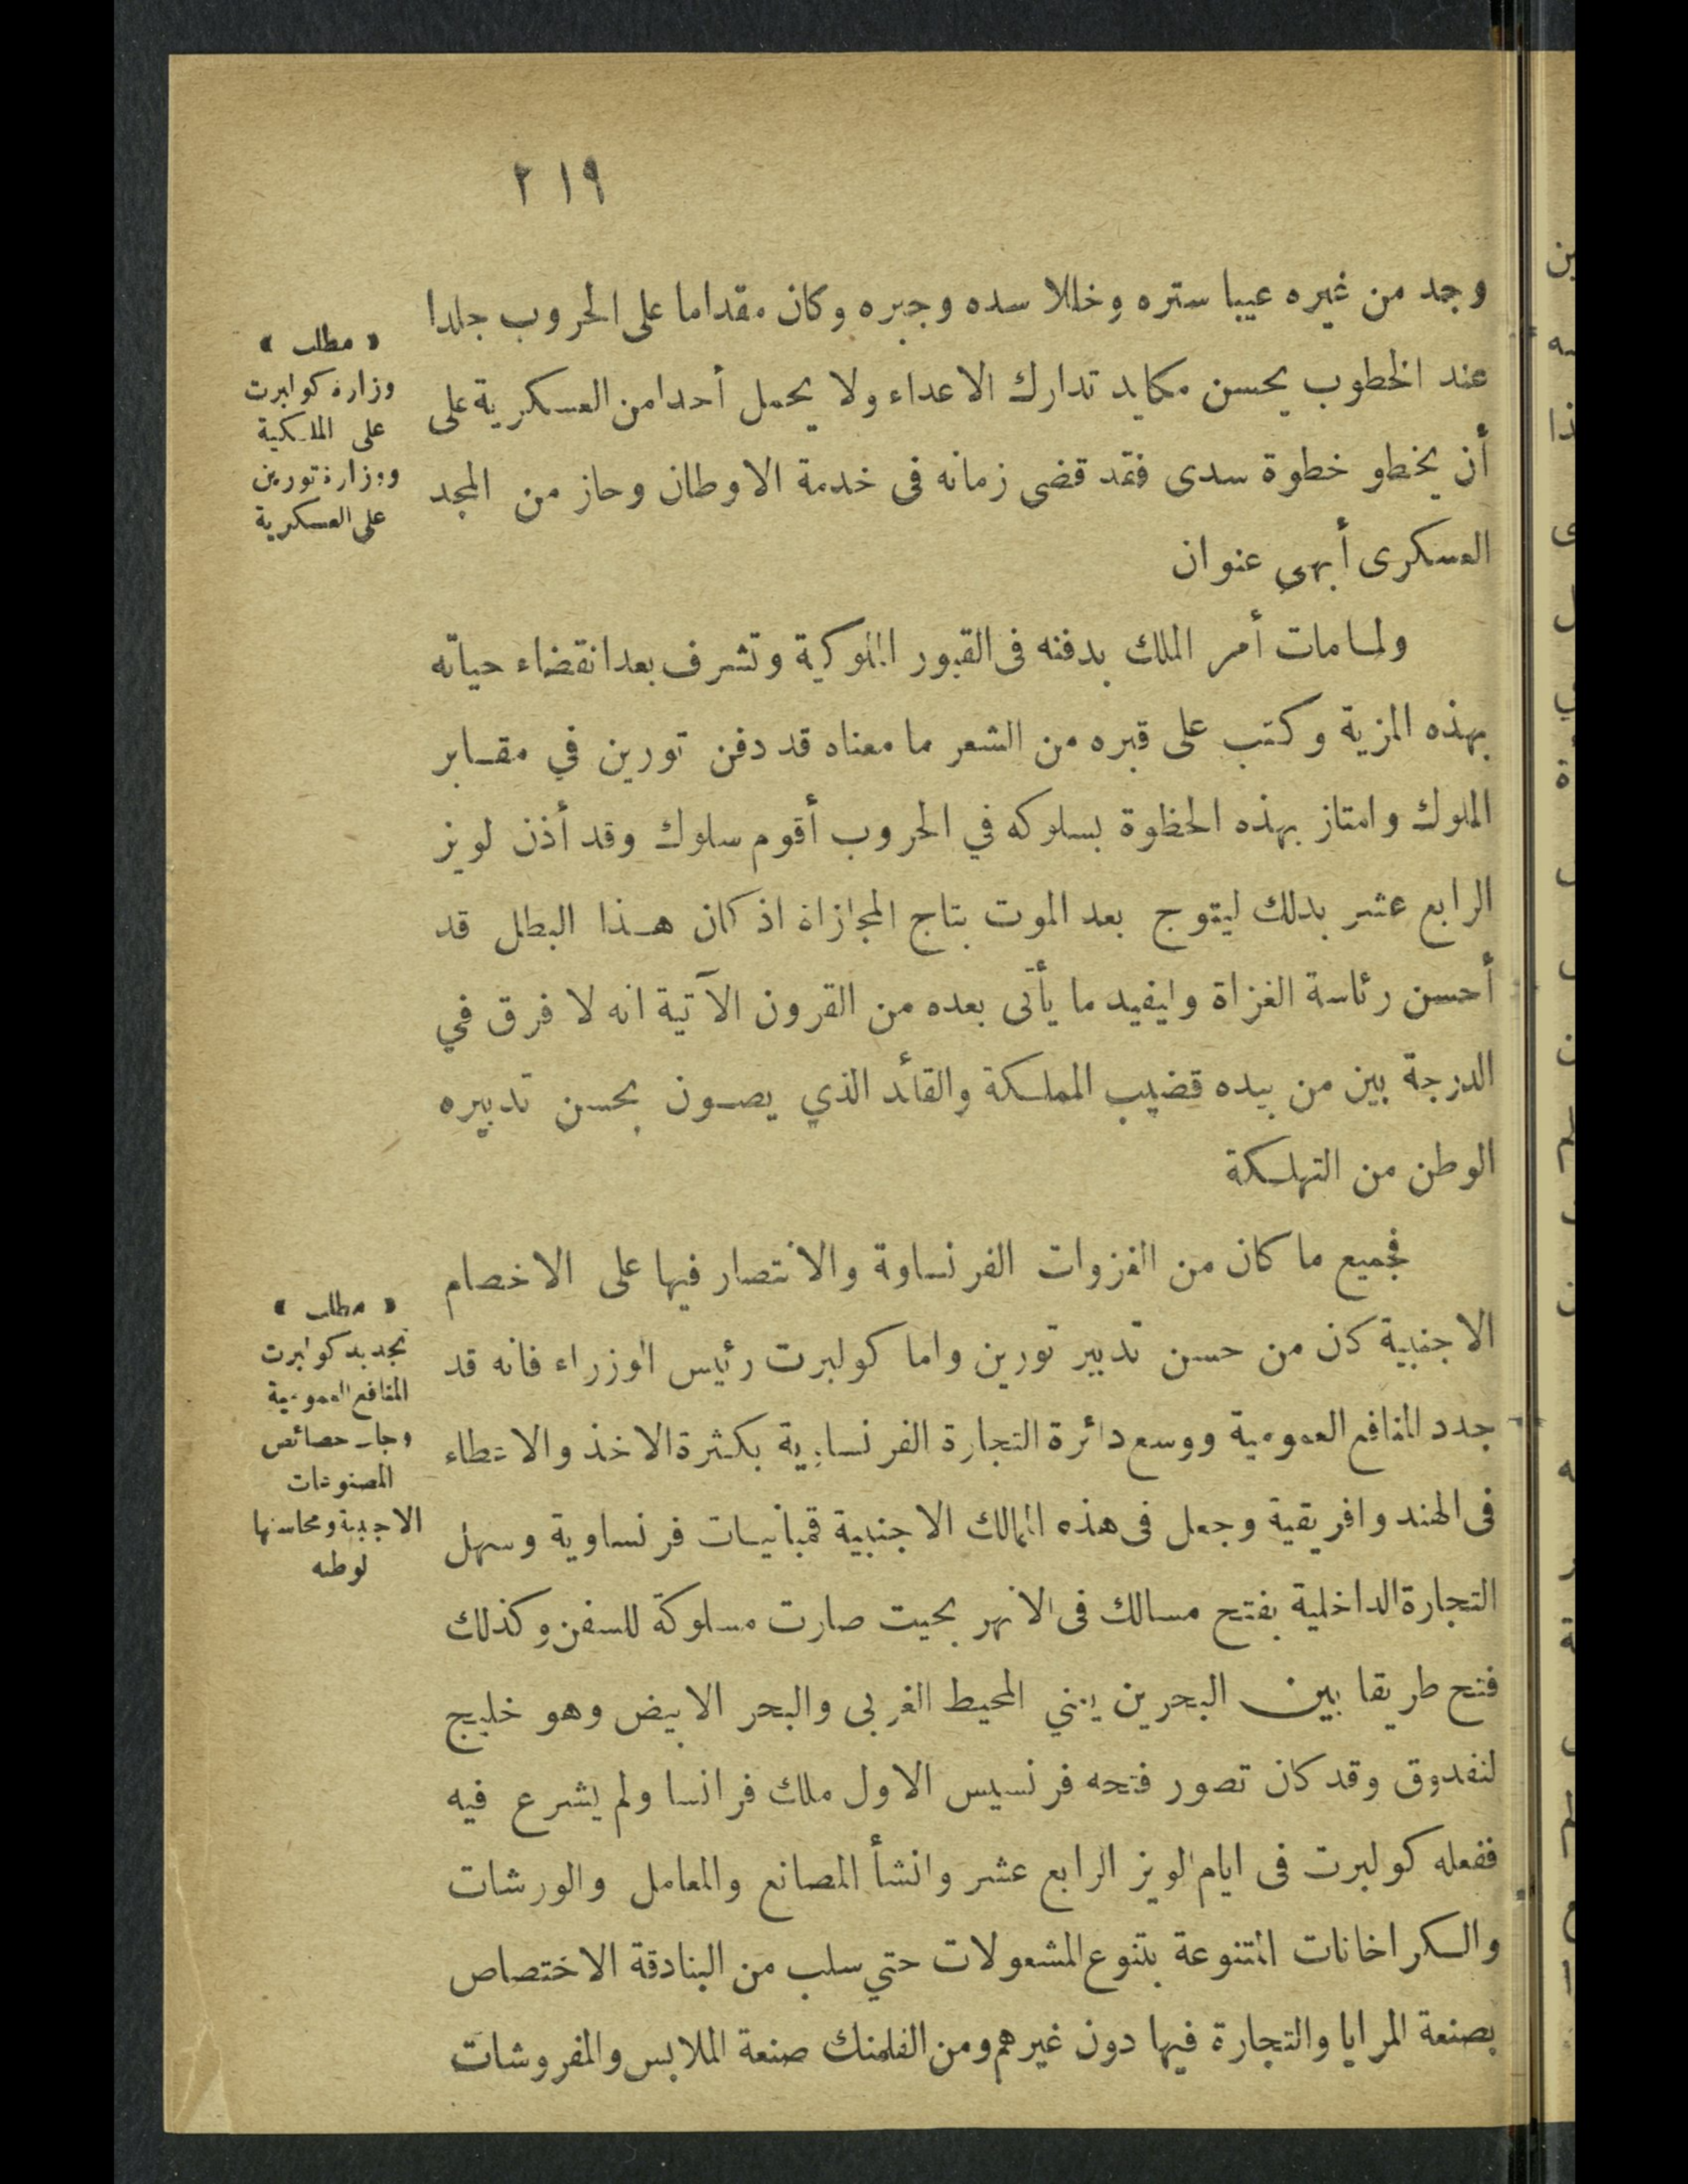 ٢١٩
وجد من غيره عيبا ستره وخللا سده وجبره وكان مقداما على الحروب جلدا
عند الخطوب يحسن مكايد تدارك الاعداء ولا يحمل أحدا من العسكرية على
أن يخطو خطوة سدى فقد قضى زمانه فى خدمة الاوطان وحاز من المجد
العسكرى أبهى عنوان
« مطلب »
وزارة كوابرت
على الملكية
ووزارة تورين
على العسكرية
ولما مات أمر الملك بدفنه فى القبور الملوكية وتشرف بعد انقضاء حياته
بهذه المزية وكتب على قبره من الشعر ما معناه قد دفن تورين في مقابر
الملوك وامتاز بهذه الحظوة بسلوكه في الحروب أقوم سلوك وقد أذن لويز
الرابع عشر بدلك ليتوج بعد الموت بتاج المجازاة اذ كان هذا البطل قد
أحسن رئاسة الغزاة وليفيد ما يأتى بعده من القرون الآتية انه لا فرق في
الدرجة بين من بيده قضيب المملكة والقائد الذي يصون بحسن تدبيره
الوطن من التهلكة
فجميع ما كان من الغزوات الفرنساوة والانتصار فيها على الاخصام
الاجنبية كان من حسن تدبير تورين واما كولبرت رئيس الوزراء فانه قد
جدد المنافع العمومية ووسع دائرة التجارة الفرنساوية بكثرة الاخذ والاعطاء
فى الهند وافريقية وجعل فى هذه الممالك الاجنبية قمبانيات فرنساوية وسهل
التجارة الداخلية بفتح مسالك فى الانهر بحيت صارت مسلوكة للسفن وكذلك
فتح طريقا بين البحرين يعني المحيط الغربى والبحر الابيض وهو خليج
لنغدوق وقد كان تصور فتحه فرنسيس الاول ملك فرانسا ولم يشرع فيه
ففعله كولبرت فى ايام لويز الرابع عشر وانشأ المصانع والمعامل والورشات
والكراخانات المتنوعة بتنوع المشعولات حتي سلب من البنادقة الاختصاص
بصنعة المرايا والتجارة فيها دون غيرهم ومن الفلمنك صنعة الملابس والمفروشات
« مطلب »
تجديد كوابرت
المنافع العمومية
وجلب خصائص
المصنوعات
الاجنبية ومحاسنها
لوطنه